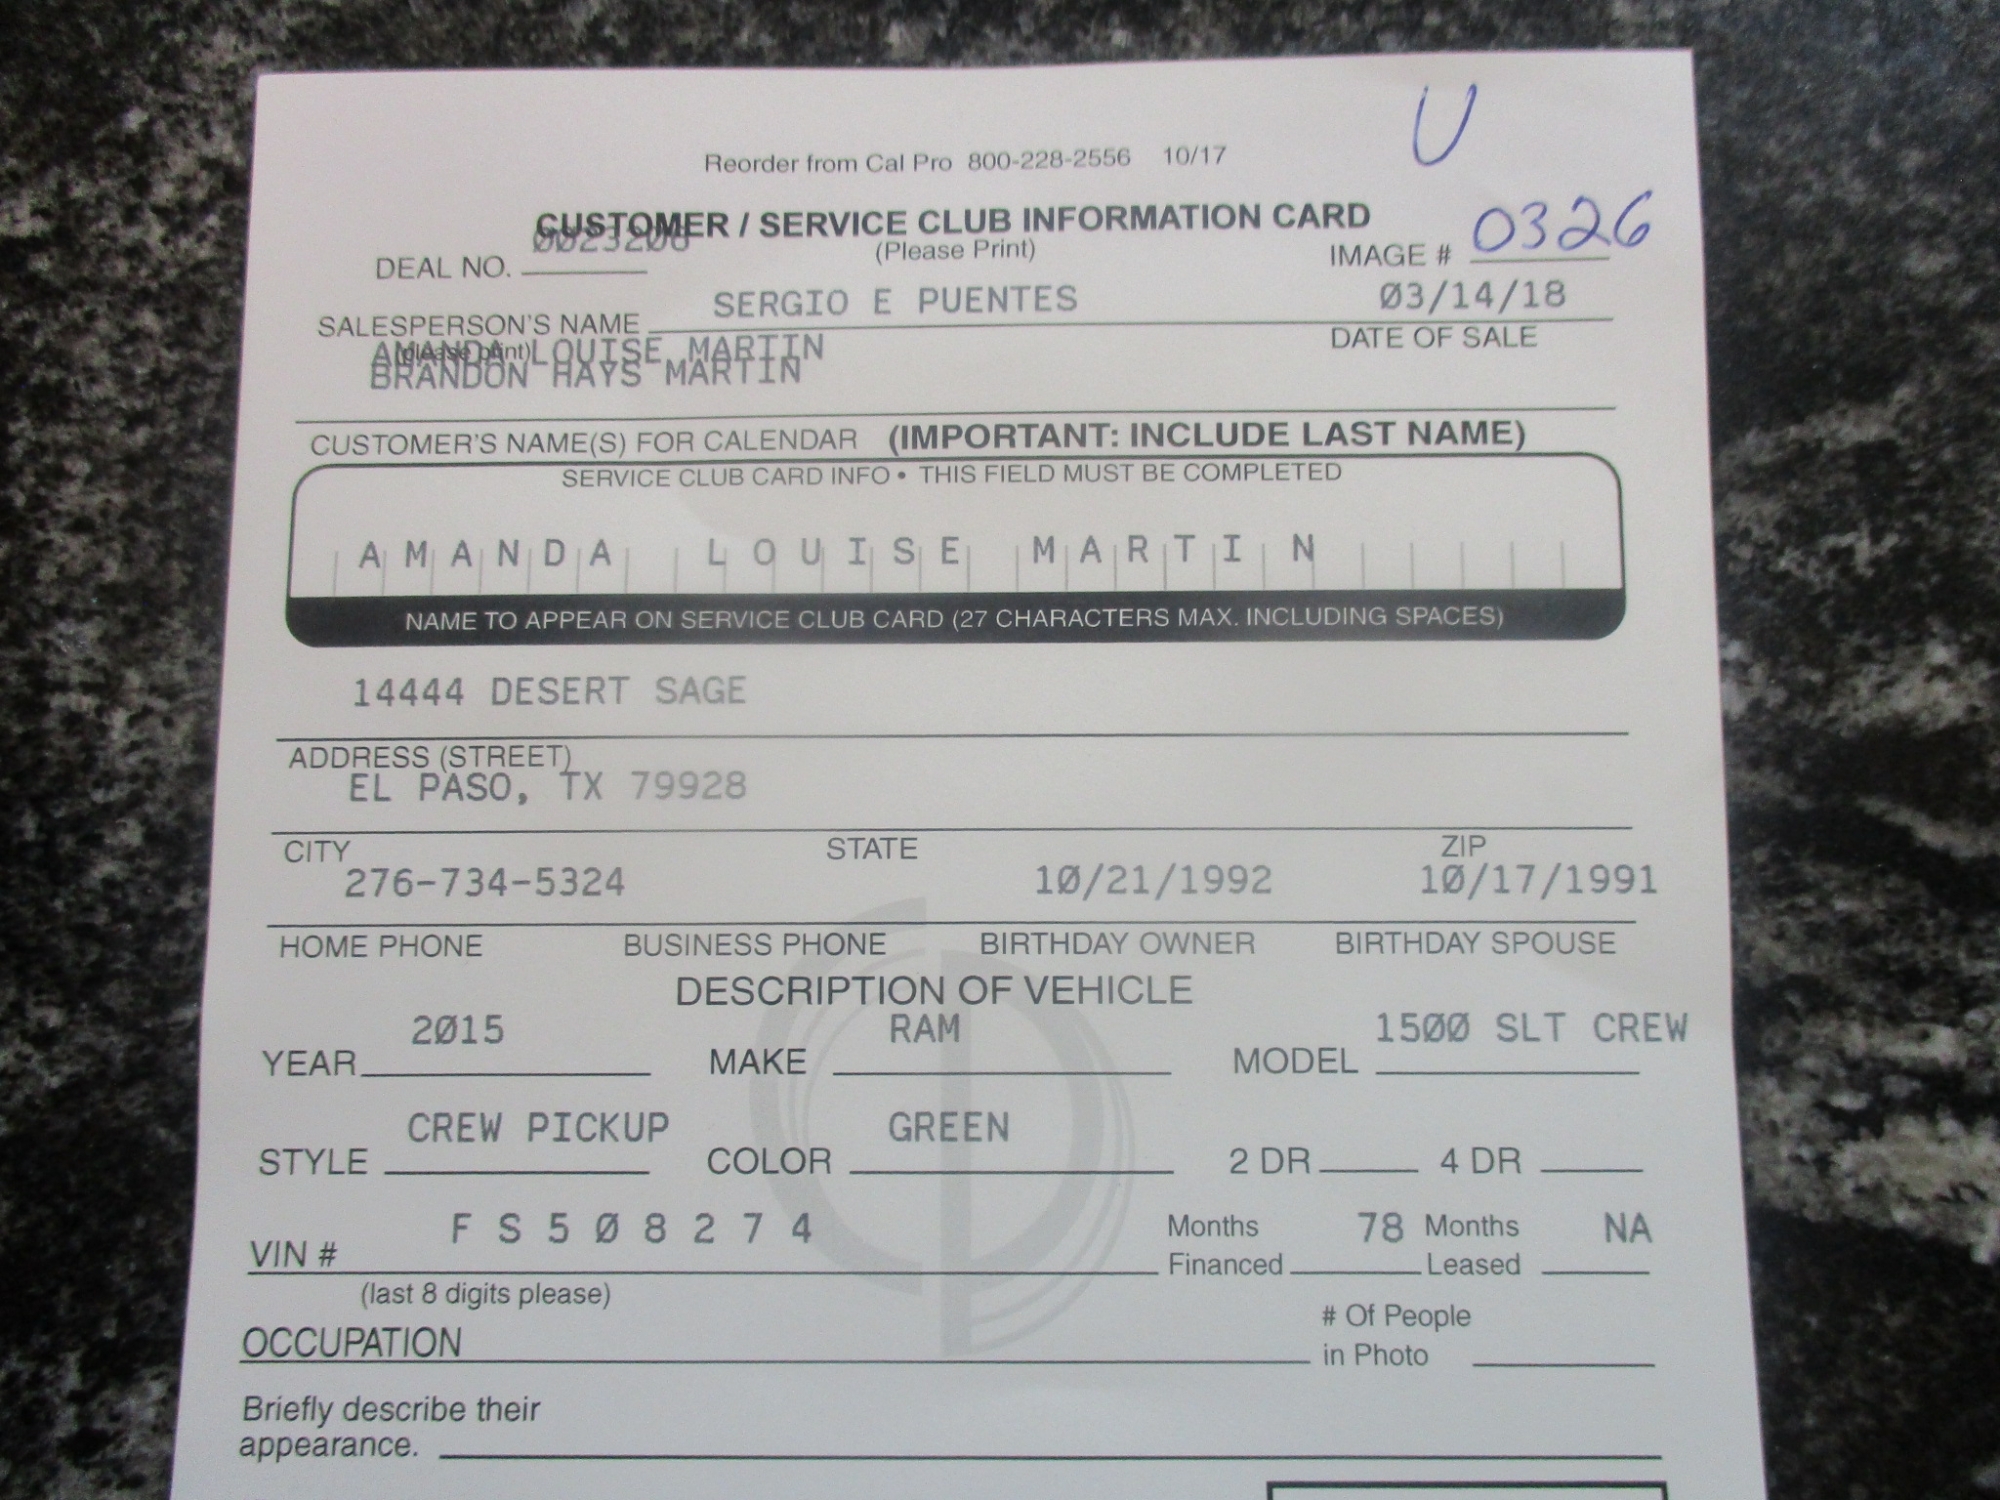 U
Reorder from Cal Pro 800-228-2556 10/17
CUSTOMER / SERVICE CLUB INFORMATION CARD
(Please Print)
DEAL NO. IMAGE # 0326
SERGIO E PUENTES 03/14/18
SALESPERSON'S NAME DATE OF SALE
(please print)
AMANDA LOUISE MARTIN
BRANDON HAYS MARTIN
CUSTOMER'S NAME(S) FOR CALENDAR (IMPORTANT: INCLUDE LAST NAME)
SERVICE CLUB CARD INFO • THIS FIELD MUST BE COMPLETED
AMANDA LOUISE MARTIN
NAME TO APPEAR ON SERVICE CLUB CARD (27 CHARACTERS MAX. INCLUDING SPACES)
14444 DESERT SAGE
ADDRESS (STREET)
EL PASO, TX 79928
CITY STATE ZIP
276-734-5324 10/21/1992 10/17/1991
HOME PHONE BUSINESS PHONE BIRTHDAY OWNER BIRTHDAY SPOUSE
DESCRIPTION OF VEHICLE
2015 RAM 1500 SLT CREW
YEAR MAKE MODEL
CREW PICKUP GREEN
STYLE COLOR 2 DR 4 DR
F S 5 0 8 2 7 4 Months 78 Months NA
VIN # Financed Leased
(last 8 digits please)
# Of People
OCCUPATION in Photo
Briefly describe their
appearance.